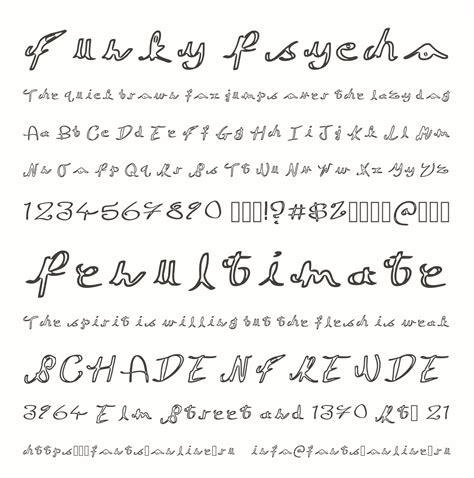 Funky Psycho
The quick brown fox jumps over the lazy dog
Aa Bb Cc Dd Ee Ff Gg Hh Ii Jj Kk Ll Mm
Nn Oo Pp Qq Rr Ss Tt Uu Vv Ww Xx Yy Zz
1234567890 □□□!?#$2□□□□@□□□
Penultimate
The spirit is willing but the flesh is weak
SCHADENFREUDE
3964 Elm Street and 1370 Rt□ 21
https□□□fonts□online□ru info@fonts□online□ru